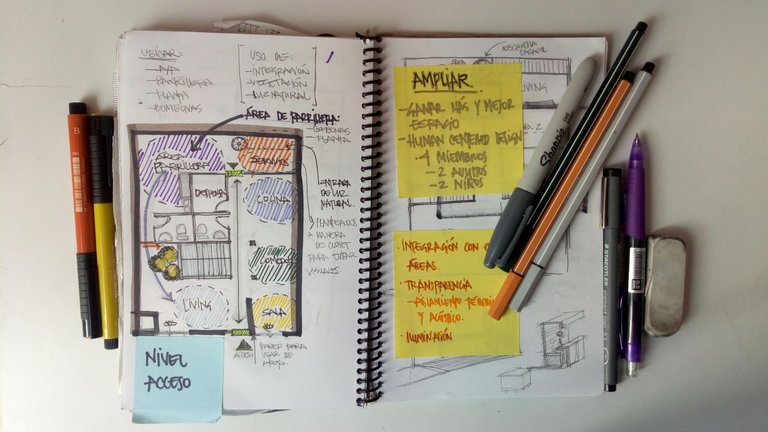 UBICAR:
— A/A
— PARRILLERA
— PLANTA
— BOMBONAS
USO DE:
- INTEGRACIÓN
- VEGETACIÓN
- LUZ NATURAL
ÁREA DE PARRILLERA:
- BOMBONAS
- PLANTA
ÁREA
PARRILLERA
SERVICIOS
DESPENSA
COCINA
COMEDOR
LIVING
SALA
ACCESO
- ENTRADA
DE LUZ
NATURAL
DE CLOSET
PARA EVITAR
VISUALES
PARED PARA
USAR DE
APOYO.
NIVEL
ACCESO
LIVING
AMPLIAR
- GANAR MÁS Y MEJOR
ESPACIO
- HUMAN CENTERED DESIGN
4 MIEMBROS
- 2 ADULTOS
- 2 NIÑOS
• INTEGRACIÓN CON
ÁREAS
• TRANSPARENCIA
- AISLAMIENTO
Y ACÚSTICO.
• ILUMINACIÓN
Sharpie
STAEDTLER